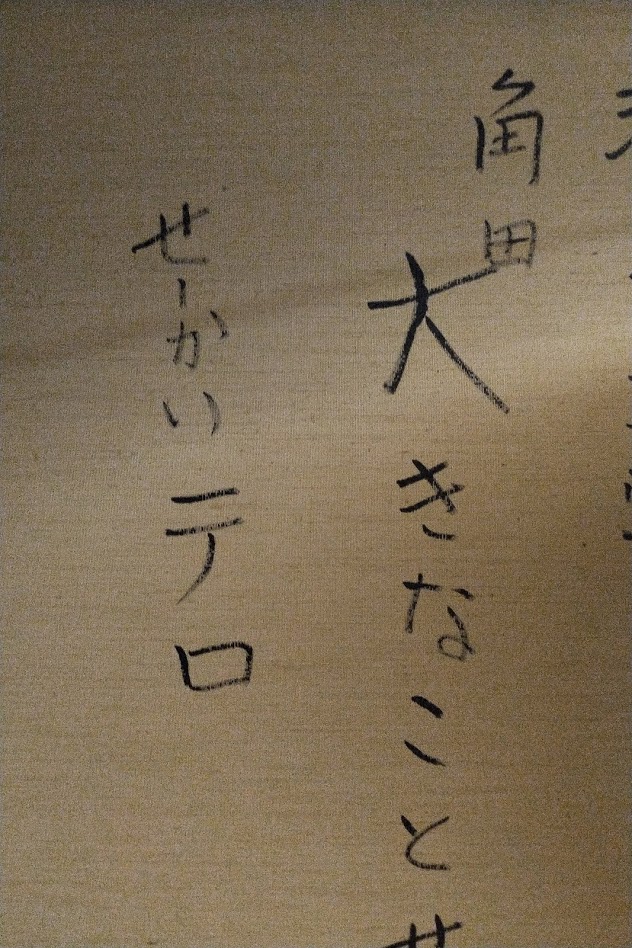 角田
大きなことせ
せかいテロ